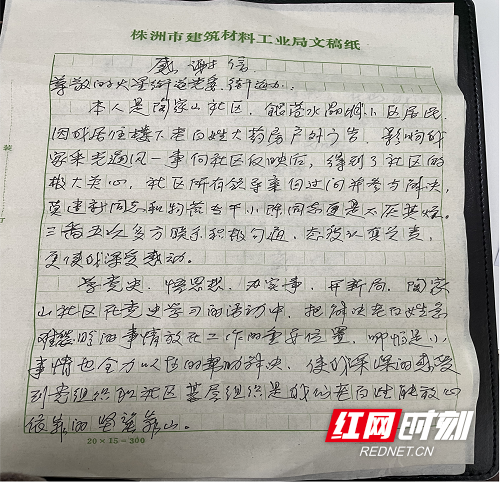 株洲市建筑材料工业局文稿纸
感谢信
尊敬的火星街道党委、街道办:
本人是陶家山社区,能
小区居民,
因我居住楼下老百姓大药房户外广告,影响我
家采光通风一事向社区反映后,得到了社区的
极大关心,社区所有领导亲自过问并参与解决,
同志和
同志更是不厌其烦。
三番五次多方联系积极沟通,态度认真负责,
更使我深受感动。
学党史、悟思想、办实事、开新局,陶家
山社区在党史学习的活动中,把解决老百姓急
难愁盼的事情放在工作的重要位置,哪怕是小
事情也全力以赴的帮助解决,使我深深的感受
到党组织和社区基层组织是我们老百姓最放心
依靠的坚强靠山。
20×15=300
装
红网时刻
REDNET.CN